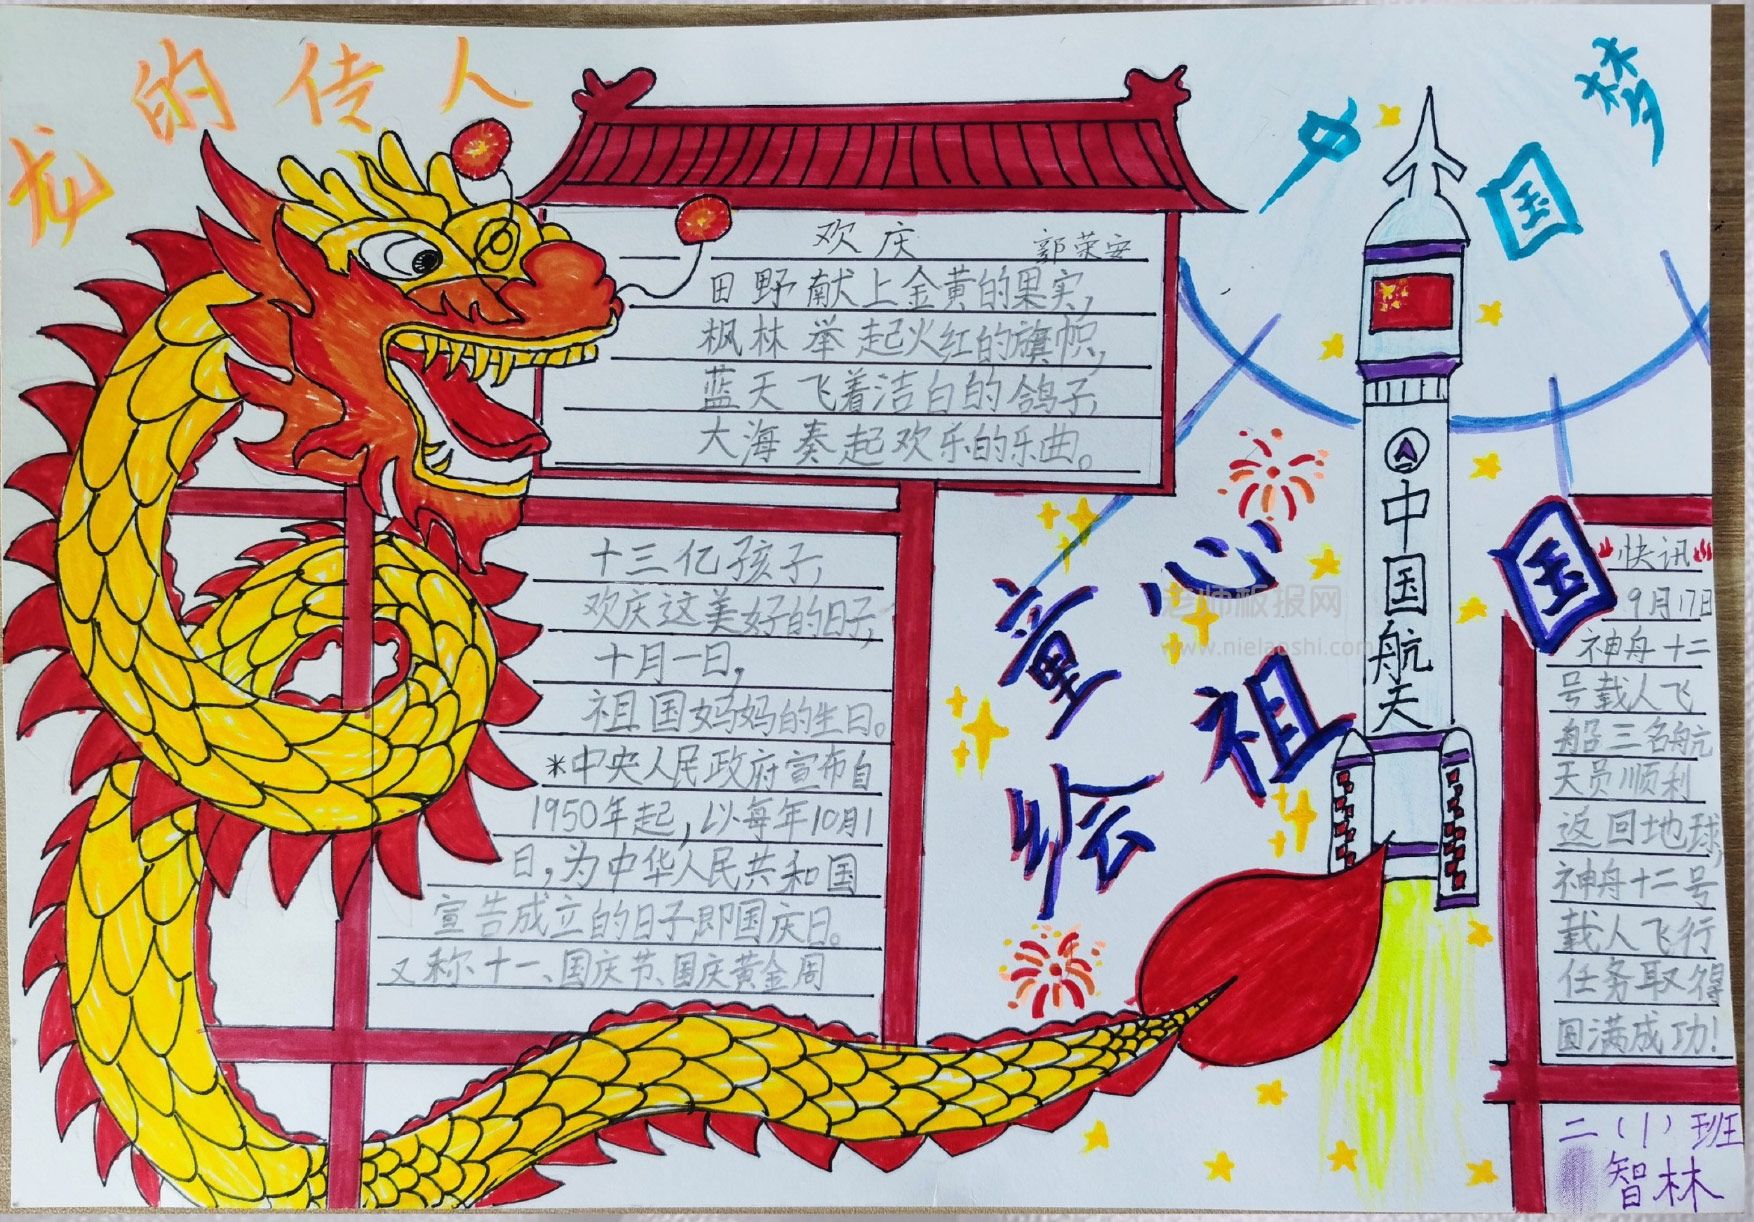 龙的传人
中国梦
欢庆
郭荣安
田野献上金黄的果实,
枫林举起火红的旗帜,
蓝天飞着洁白的鸽子,
大海奏起欢乐的乐曲。
十三亿孩子,
欢庆这美好的日子,
十月一日,
祖国妈妈的生日。
*中央人民政府宣布自
1950年起,以每年10月1
日,为中华人民共和国
宣告成立的日子,即国庆日。
又称十一、国庆节、国庆黄金周
童心
绘祖国
中国航天
快讯
9月17日
神舟十二
号载人飞
船三名航
天员顺利
返回地球,
神舟十二号
载人飞行
任务取得
圆满成功!
二(1)班
智林
老师板报网
www.nielaoshi.com